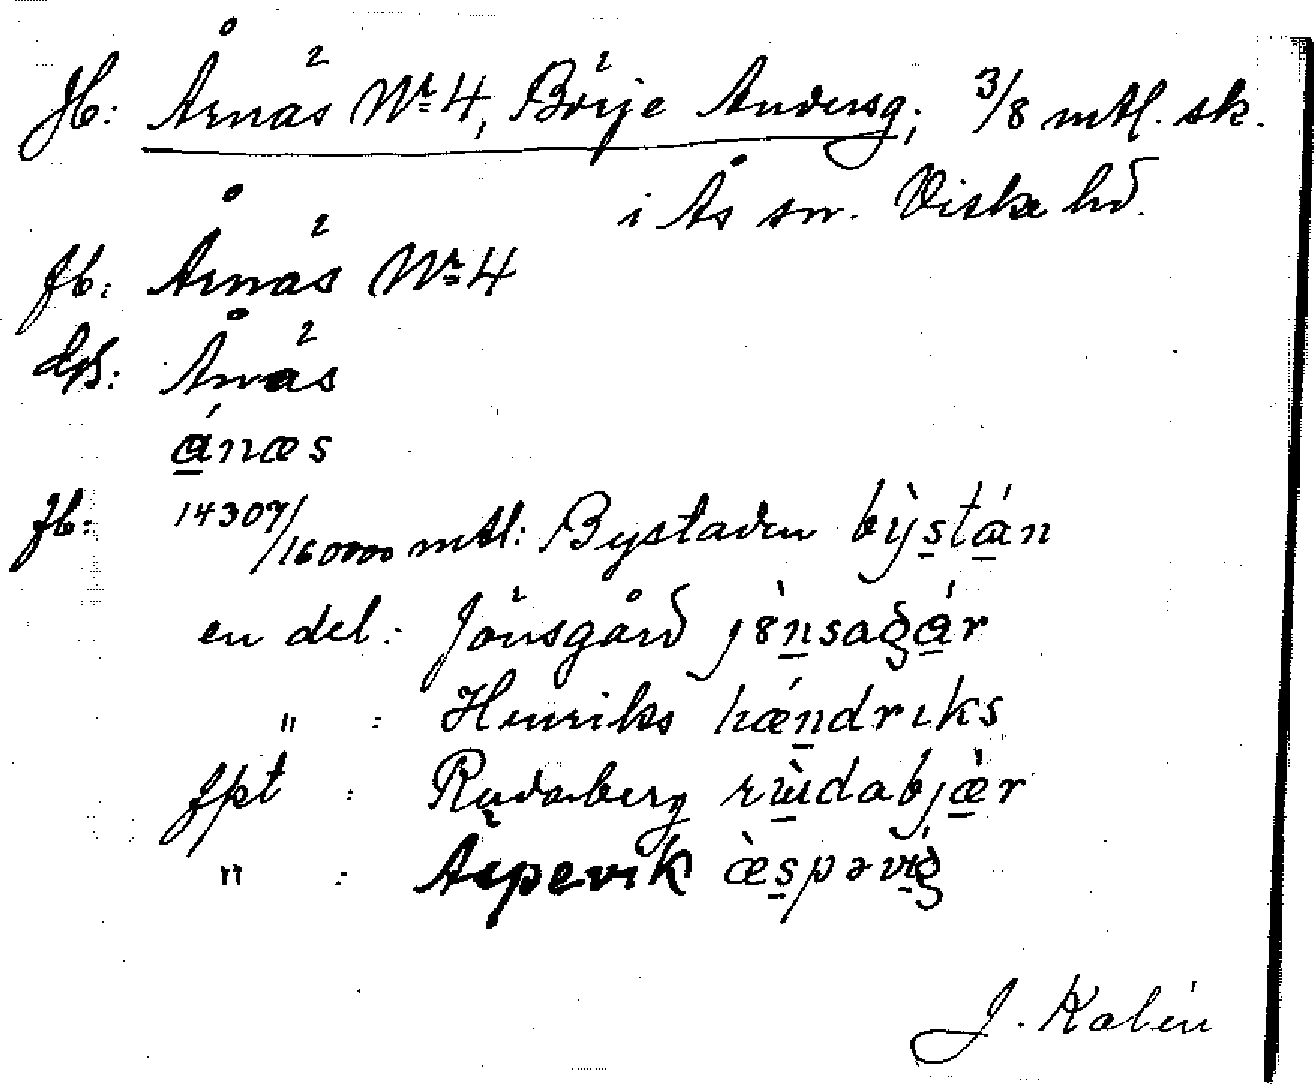 Jb: Årnäs Nr 4, Börje Andersg; 3/8 mtl. sk.
i Ås sn. Viske hd.
Jb: Årnäs Nr 4
Årnäs
ánæs
Jb: 14307/160000 mtl: Bystaden bỳstán
en del: Jönsgård jònsagár
" : Henriks hǽndrıks
fpt : Rudaberg rùdabjǽr
" : Äspevik æ̀spəvıg
J. Kalén